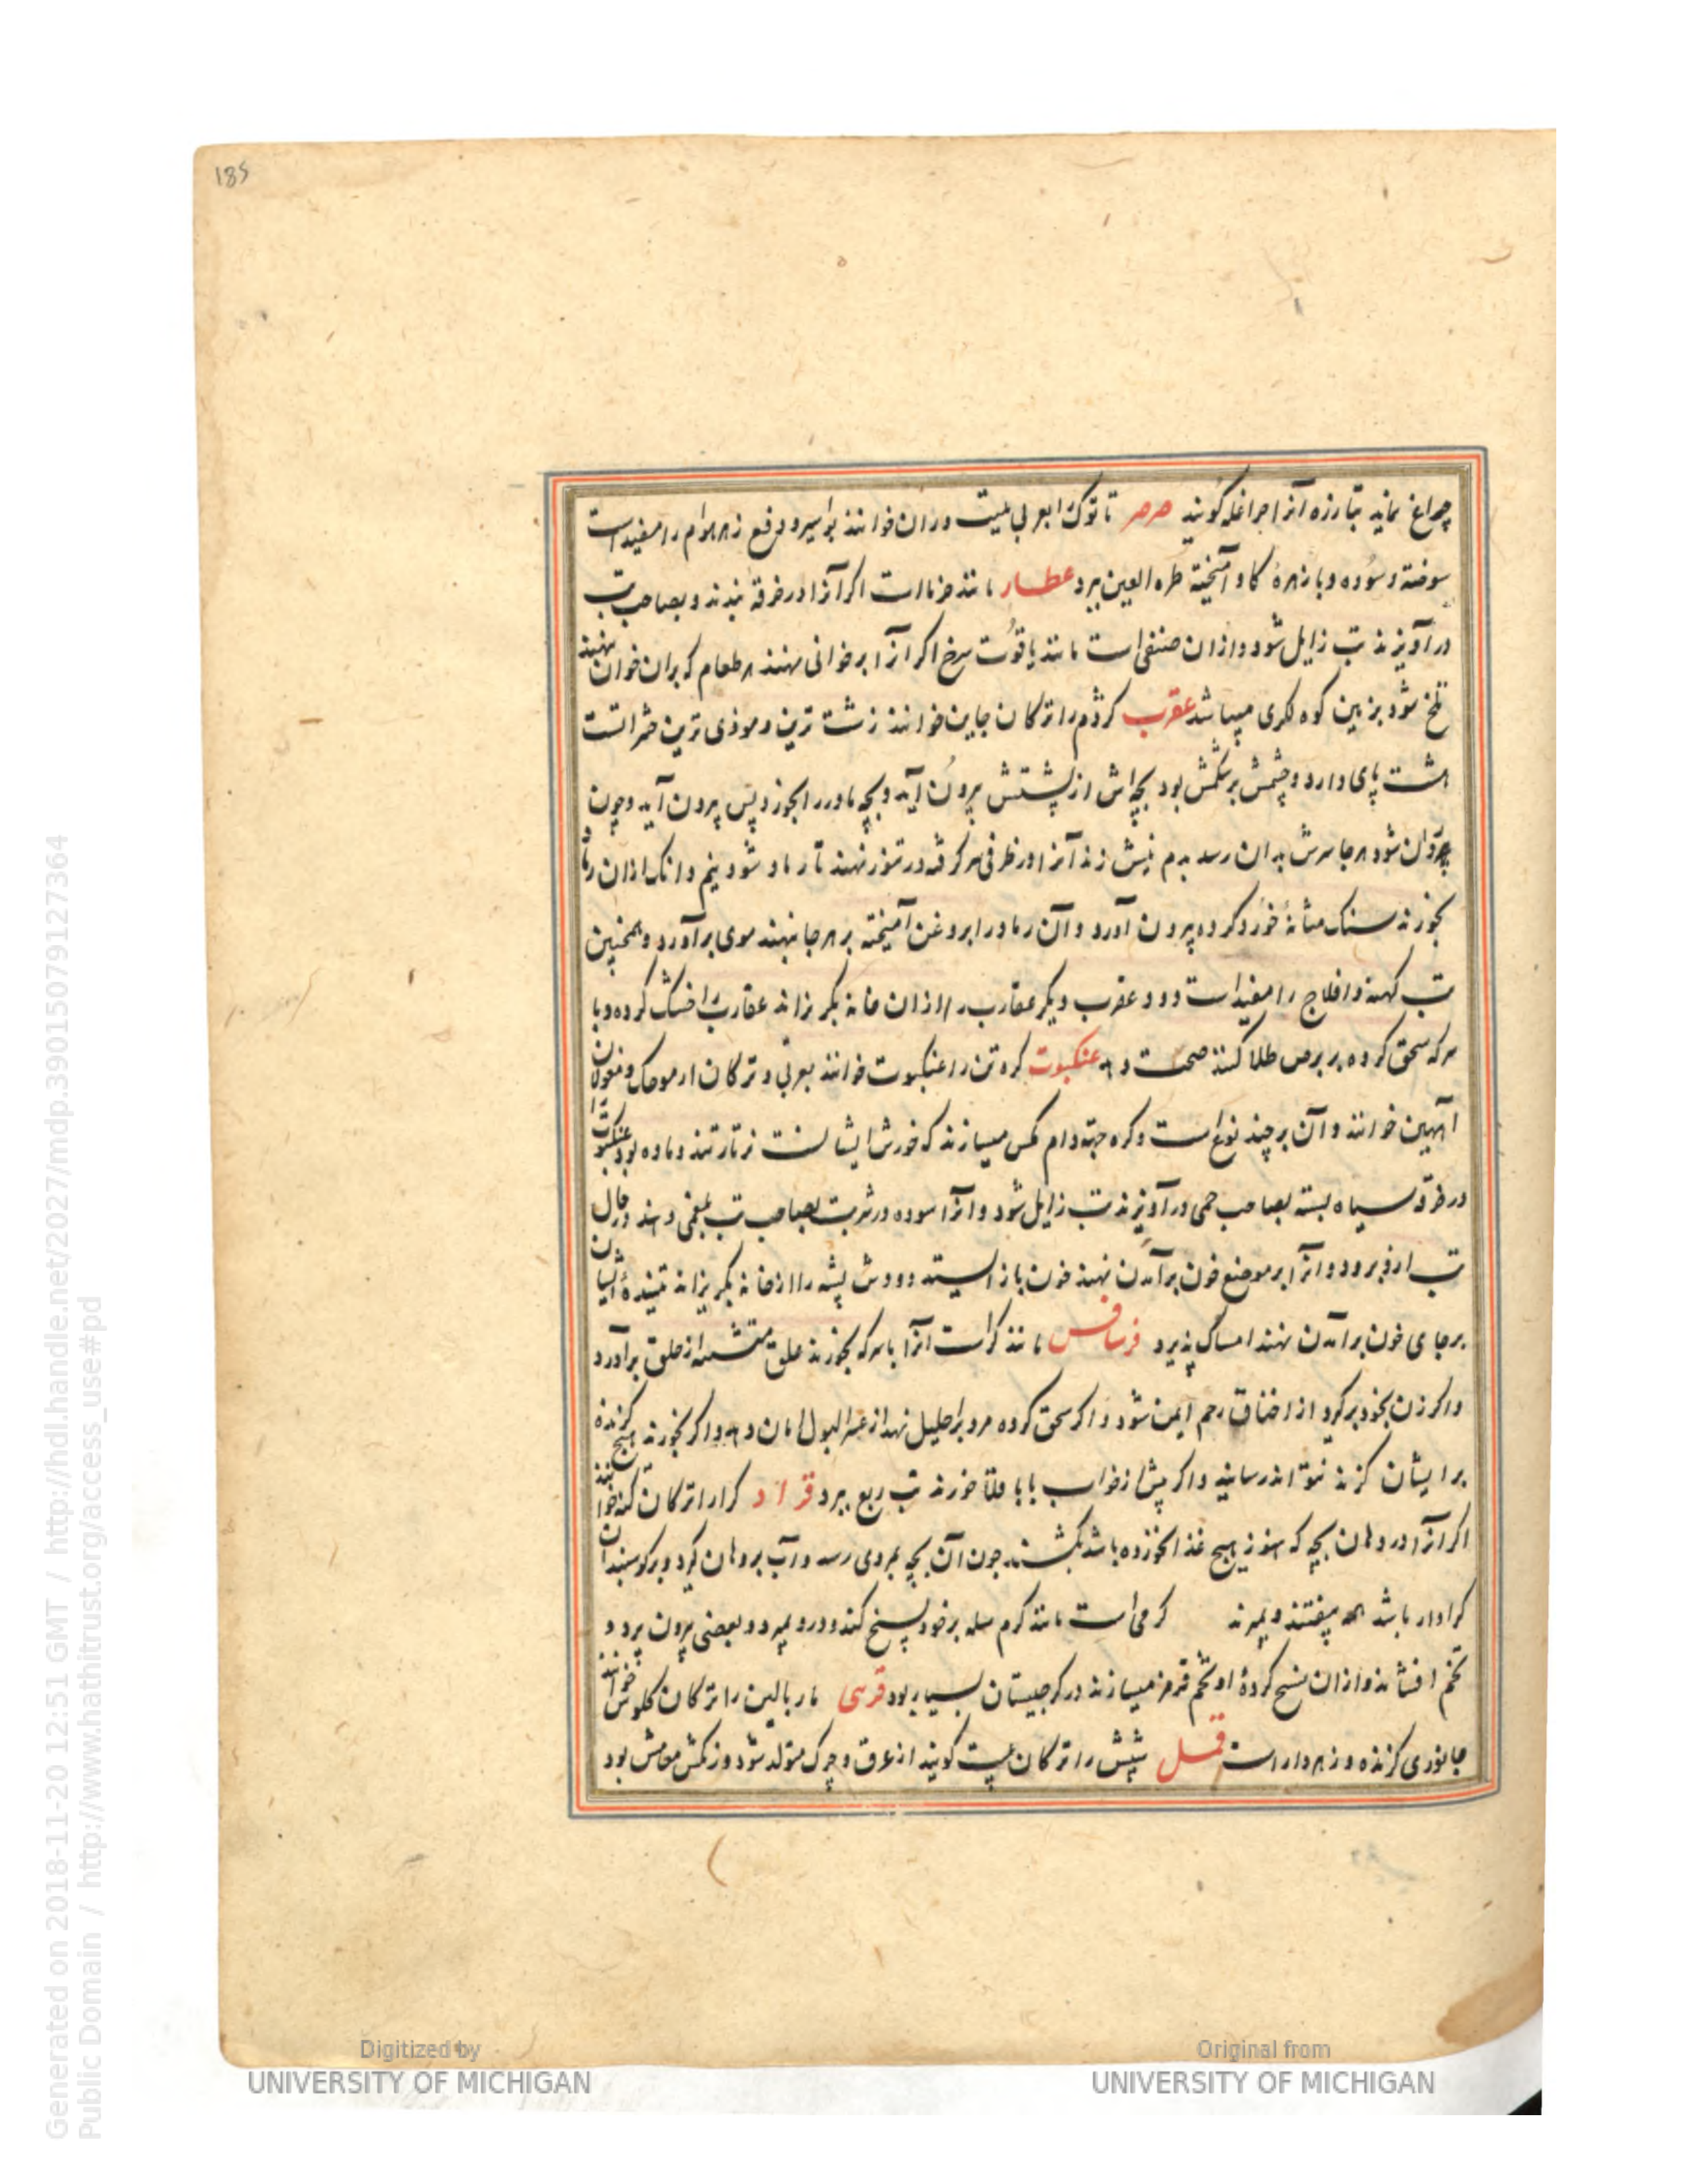 185
چراغ نماید بتازه آنرا چراغله گویند صرصر تا توک ابعربی میت وران خوانند بواسیر و دفع زهر هوام را مفید است
سوخته و سوده و با زهرهٔ کاو آمیخته طره العین ببرد عطار مانند خر ماست اکر آنرا در خرقه بندند و بصاحب تب
درآویزند تب زایل شود و از ان صنفی است مانند یاقوت سرخ اکر آنرا بر خوانی نهند هر طعام که بران خوان نهند
تلخ شود بزمین کوه لکری میباشد عقرب کژدم را ترکان جاین خوانند زشت ترین و موذی ترین حشراتست
هشت پای دارد و چشمش بر شکمش بود بچه اش از پشتش بیرون آید و بچه مادر را بخورد پس بیرون آید و چون
شود هر جا سرش بدان رسد بدم نیش زند آنرا در ظرفی سر کرفته در تنور نهند تا رماد شود نیم دانک ازان رماد
بخورند سنک مثانهٔ خورد کرده بیرون آورد و آن رماد را بروغن آمیخته بر هر جا نهند موی برآورد و همچنین
تب کهنه و افلاج را مفید است و دود عقرب دیکر عقارب را از ان خانه بکریزاند عقارب را خشک کرده و با
سرکه سحق کرده بر برص طلا کنند صحت دهد عنکبوت کره تن را عنکبوت خوانند بعربی و ترکان ارموجک و مغولان
آهین خوانند و آن بر چند نوع است و کره جهة دام مکس میسازند که خورش ایشانست نر تار تند و ماده بود عنکبوت را
در خرقه سیاه بسته بصاحب حمی درآویزند تب زایل شود و آنرا سوده در شربت بصاحب تب بلغمی دهند در حال
تب ازو برود و آنرا بر موضع خون برآمدن نهند خون باز ایستد و دودش پشه را از خانه بکریزاند تنیدهٔ ایشان
بر جای خون برآمدن نهند امساک پذیرد فرسافس مانند کراست آنرا با سرکه بخورند علق متشبث از حلق برآورد
و اکر زن بخود بر کیرد از اختناق رحم ایمن شود و اکر سحق کرده مرد بر احلیل نهد از عسر البول امان دهد و اکر بخورند هیچ کزنده
برایشان کزند نتواند رسانید و اکر پیش از خواب با باقلا خورند تب ربع ببرد قراد کرار اترکان کنه خوانند
اکر آنرا در دهان بچه که هنوز هیچ غذا نخورده باشد بکشند چون آن بچه بمردی رسد و آب بر دهان کیرد و بر کوسبندان
کرادار باشد همه بیفتند و بمیرند کرمی است مانند کرم سله بر خود نسخ کند و درو بمیرد و بعضی بیرون پرد و
تخم افشاند و از ان نسج کردهٔ او تخم قرمز میسازند در کرجستان بسیار بود قرسی مار بالین را ترکان کلوس خوانند
جانوری کزنده و زهردار است قمل شپش را ترکان بیت کویند از عرق و چرک متولد شود و زکمش معاش بود
Digitized by
UNIVERSITY OF MICHIGAN
Original from
UNIVERSITY OF MICHIGAN
Generated on 2018-11-20 12:51 GMT / http://hdl.handle.net/2027/mdp.39015079127364
Public Domain / http://www.hathitrust.org/access_use#pd